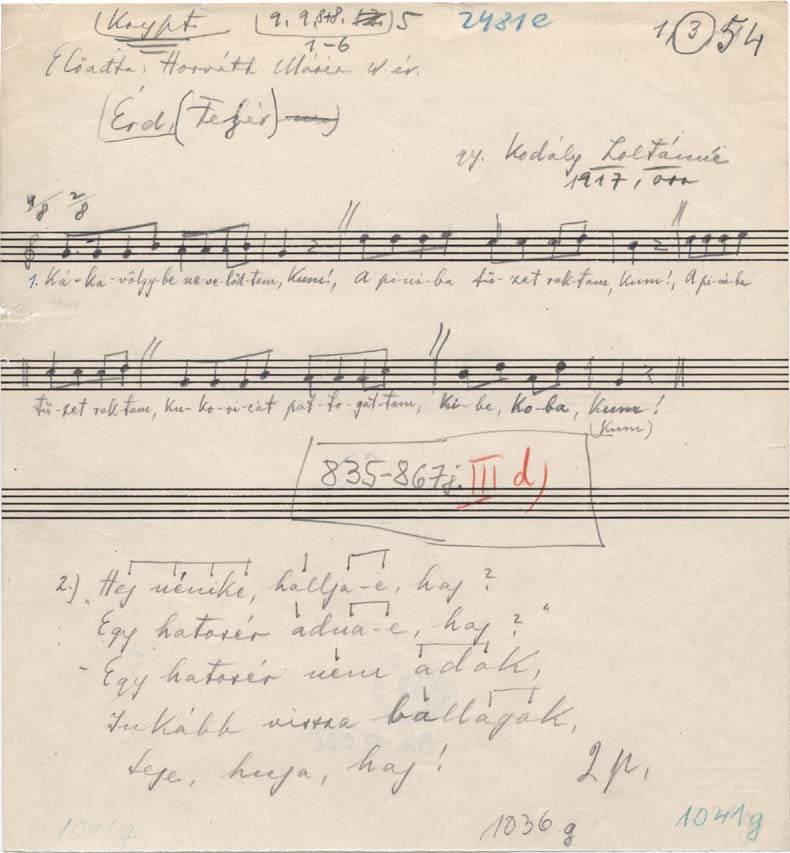 (Krypt. (9, 9, 8+8, 5 2481e 1, 3 54
1-6
Előadta: Horváth Mária
(Érd, (Fejér)
gy. Kodály Zoltánné
1917,
4/8 2/8
1. Ká-ka-völgy-be ne-ve-lőd-tem, Kum!, A pi-ná-ba tü-zet rak-tam, Kum!, A pi-ná-ba
tü-zet rak-tam, Ku-ko-ri-cát pat-to-gat-tam, Ki-be, Ko-ba, Kum!
(Kum)
835-867j. III d)
2.) "Hej nénike, hallja-e, haj?
Egy hatosér adna-e, haj?"
- Egy hatosér nem adok,
Inkább vissza ballagok,
haj! 2 p.
1041g 1036 g 1041g